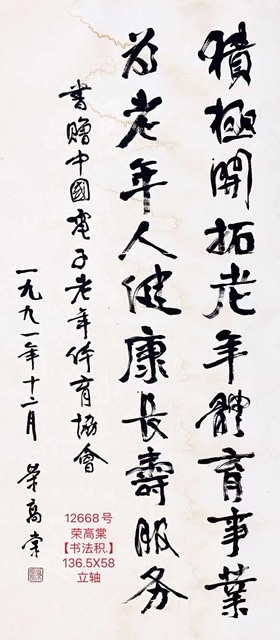 積極開拓老年體育事業
为老年人健康長壽服务
書贈中國電子老年体育協會
一九九一年十二月
荣高棠
12668号
荣高棠
【书法积.】
136.5X58
立轴